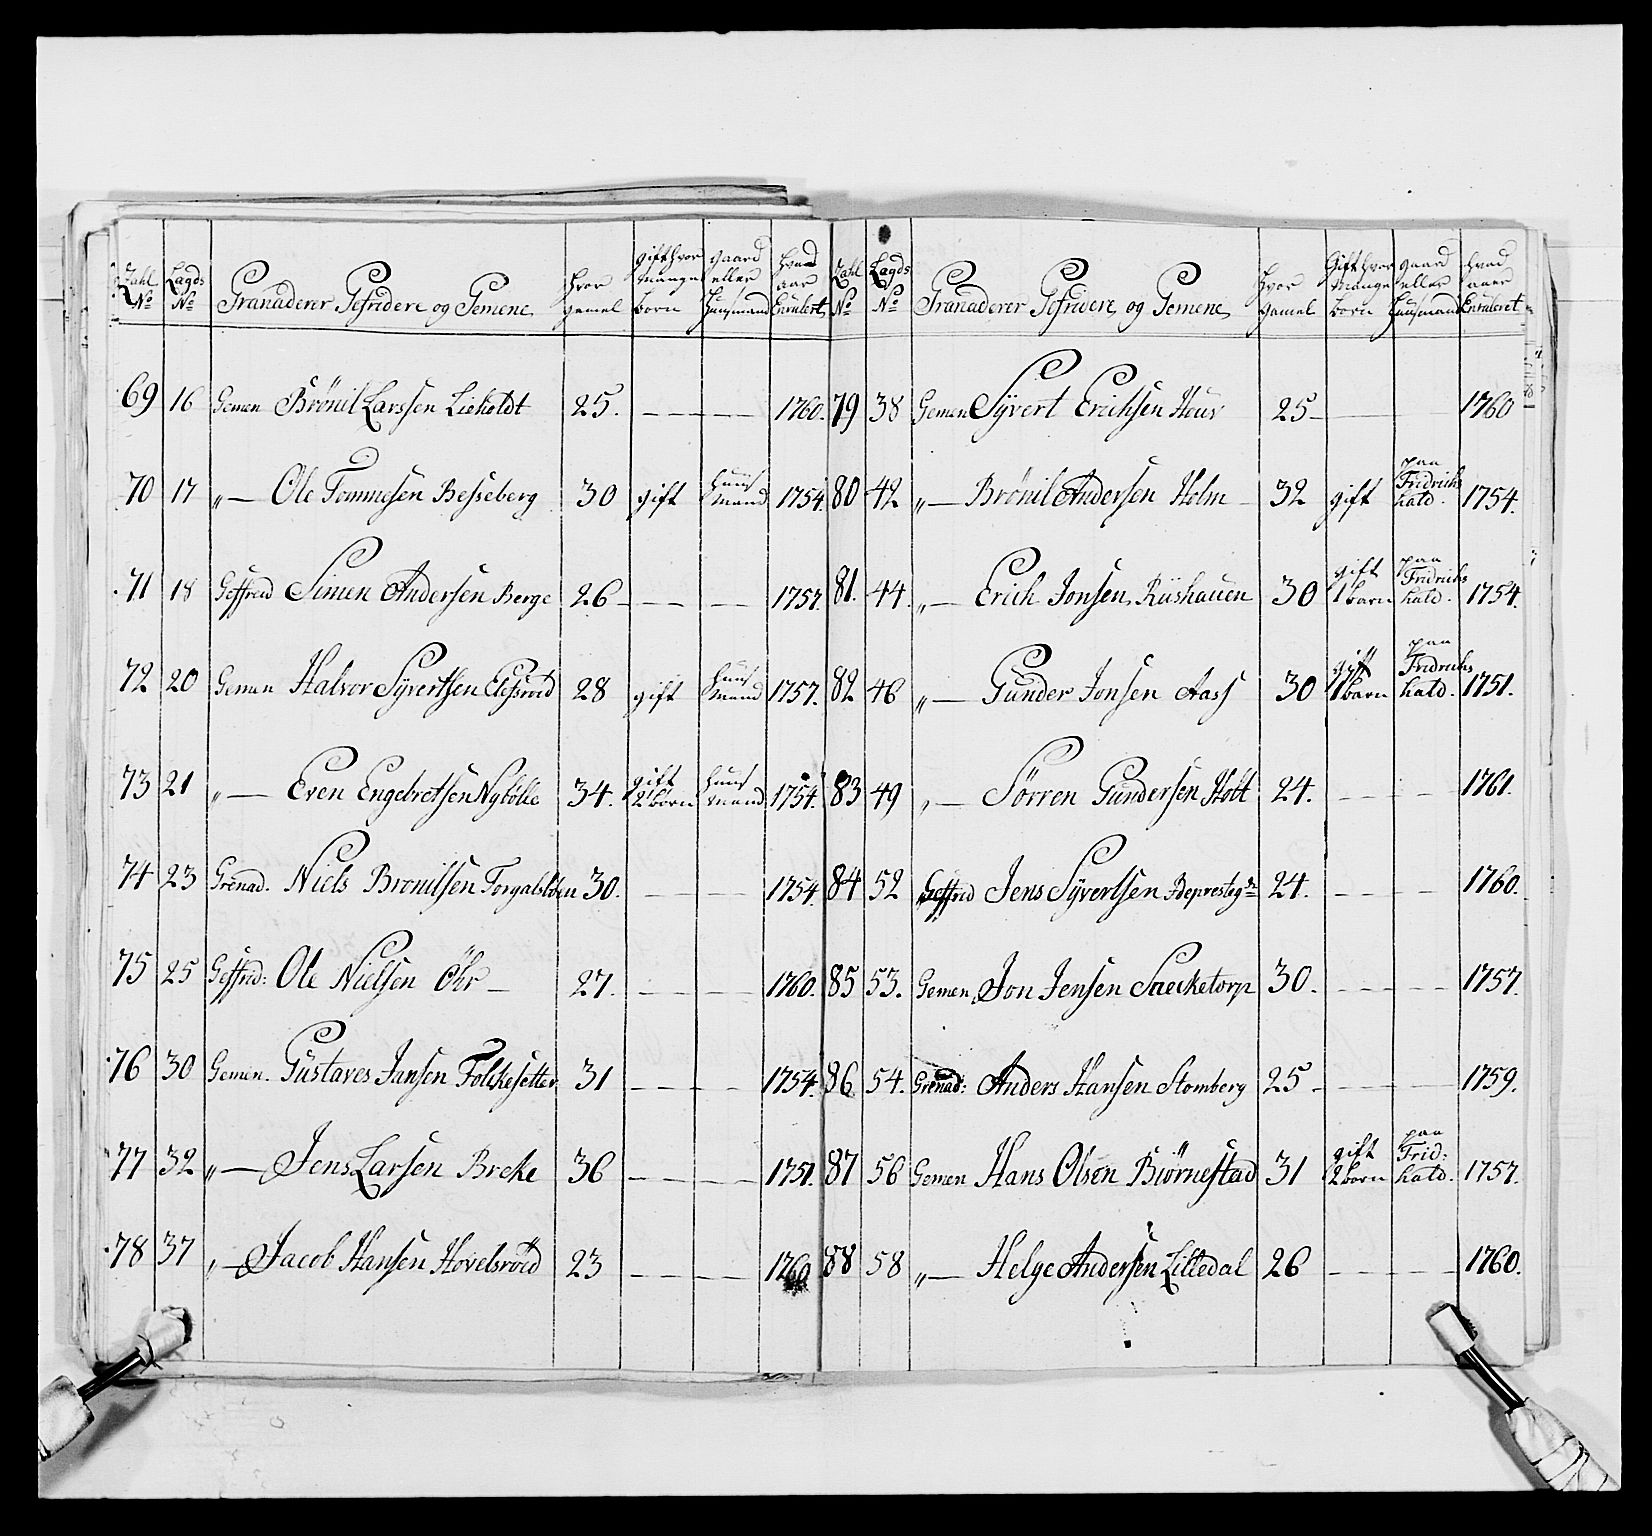 Zahl No Lagds No Granaderer Gefridere og Gemene hvor gamel gift hvor mange born gaard eller Huusmand hvad aar Enrulert
69 16 Gemen Brönil Larssen Lieholdt 25. – – – – 1760.
70 17 „ — Ole Tommesen Besseberg 30 gift huus mand 1754.
71 18 Geffreid Simen Andersen Berge 26 – – – – 1757.
72 20 Gemen Halvor Syvertsen 28 gift huus mand 1757.
73 21 „ — Even Engebretsen Nybölle 34. gift 2 born huus mand 1754.
74 23 Grenad. Niels Bronilsen 30. – – – – 1754.
75 25 Geffrid: Ole Nielsen Öhr – 27. – – – – 1760.
76 30 Gemen. Gustaves Jansen Folckesetter 31 – – – – 1754.
77 32 „ — Jens Larsen Breke 36 – – – – 1751.
78 37 „ — Jacob Hansen Hovelsröed 23 – – – – 1760.
Zahl No Lagds No Granaderer Gefridere og Gemene hvor gamel Gift hvor mange born gaard eller Huusmand hvad aaer Enruleret
79 38 Gemen Syvert Erichsen 25 – – 1760
80 42 „ — Brönil Andersen Holm 32 gift paa Fridrichs hald. 1754.
81. 44. „ — Erich Jonsen Riishauen 30 gift 1 barn paa Fridrichs hald. 1754.
82 46 „ — Gunder Jonsen Aass 30 gift 1 barn paa Fridrichs hald. 1751.
83 49 „ — Sörren Gundersen 24. – – – – 1761.
84 52 Geffrid Jens Syvertsen 24. – – – – 1760.
85 53. Gemen Jon Jensen Saecketorp 30. – – – – 1757.
86 54. Grenad: Anders Hansen Stomberg 25 – – – – 1759.
87 56 Gemen Hans Olsen Biörnestad 31 gift 2 born paa Frid: hald. 1757.
88 58 „ — Helge Andersen Lilledal 26 – – – – 1760.